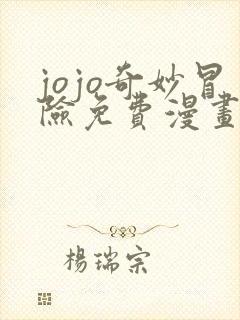 jojo奇妙冒
險免費漫畫
楊瑞宗